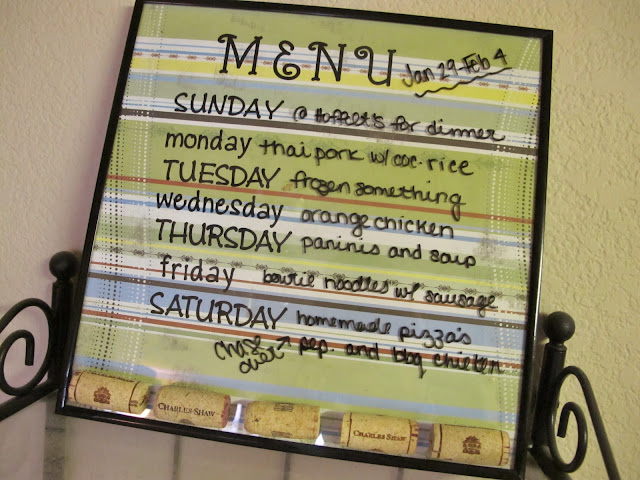 MENU Jan 29-Feb 4
SUNDAY @ Hoffert's for dinner
monday thai pork w/ coc. rice
TUESDAY frozen something
wednesday orange chicken
THURSDAY paninis and soup
friday bowtie noodles w/ sausage
SATURDAY homemade pizza's
chase over → pep. and bbq chicken
CHARLES SHAW
CHARLES SHAW